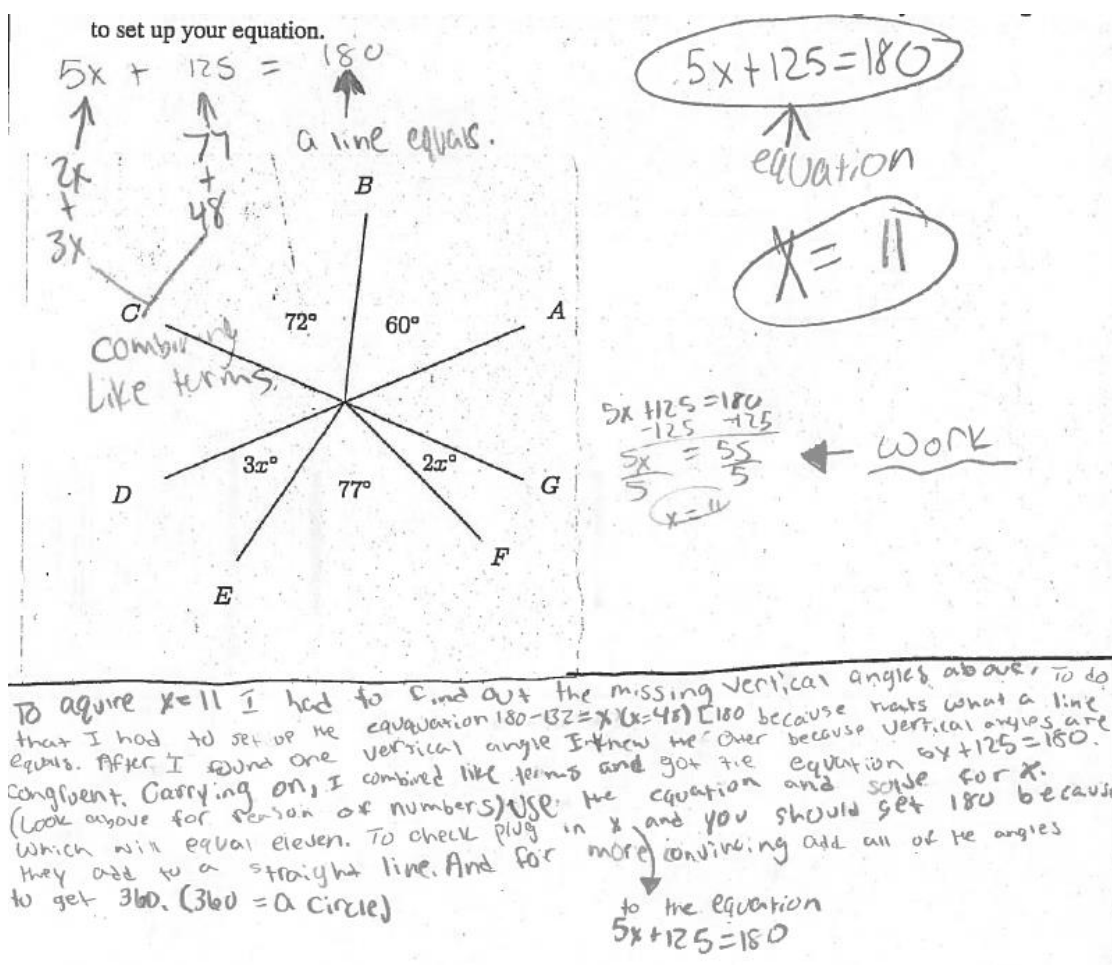 to set up your equation.
5x + 125 = 180
2x
+
3x
77
+
48
a line equals.
5x+125=180
equation
x = 11
B
C
72°
60°
A
combining
Like terms.
3x°
2x°
77°
D
G
F
E
5x +125=180
-125 -125
5x = 55
5 5
x = 11
work
To aquire x=11 I had to find out the missing vertical angles above. To do
that I had to set up the eququation 180-132=x (x=48) [180 because thats what a line
equals. After I found one vertical angle I knew the other because vertical angles are
congruent. Carrying on, I combined like terms and got the equation 5x+125=180.
(Look above for reason of numbers) Use the equation and solve for x.
which will equal eleven. To check plug in x and you should get 180 because
they add to a straight line. And for more convincing add all of the angles
to get 360. (360 = a circle)
to the equation
5x+125=180